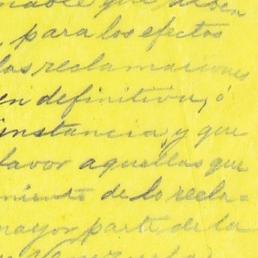 que deben
, para los efectos
las reclamaciones
en definitiva, ó
instancia, y que
favor aquellas que
miento de lo recla=
mayor parte de la